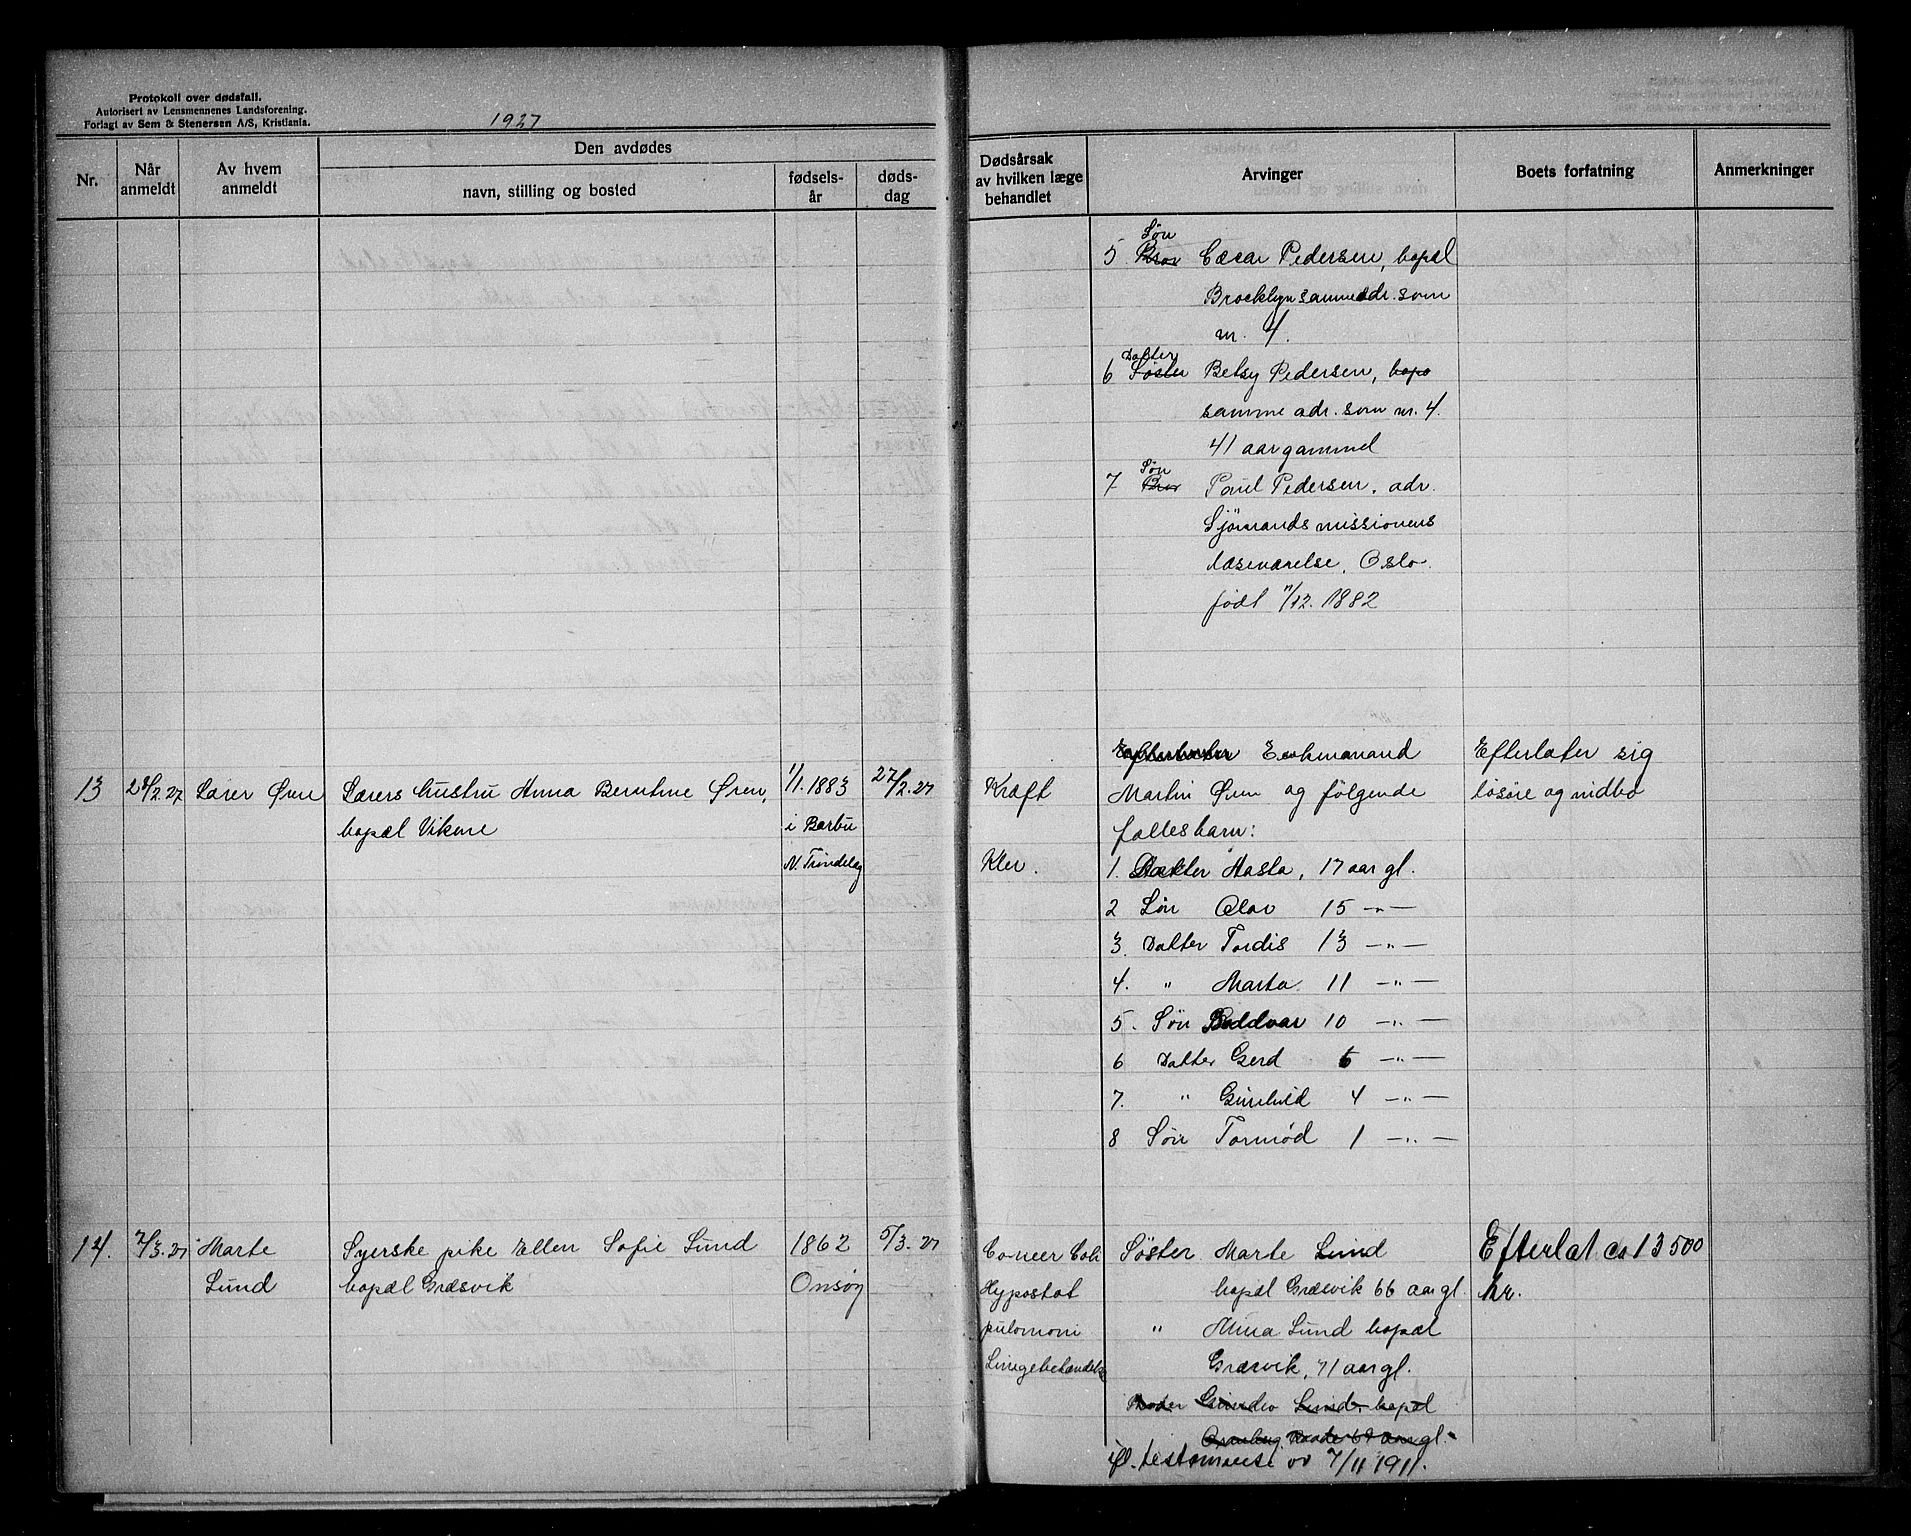 Protokoll over dødsfall.
Autorisert av Lensmennenes Landsforening.
Forlagt av Sem & Stenersen A/S, Kristiania.
1927
Nr.
Når anmeldt
Av hvem anmeldt
Den avdødes
navn, stilling og bosted
fødsels-
år
døds-
dag
Dødsårsak
av hvilken læge
behandlet
Arvinger
Boets forfatning
Anmerkninger
Søn
5 Bror Oscar Pedersen, bopæl
Brocklyn samme adr. som
nr. 4.
Datter
6 Søster Betsy Pedersen, bopæ
samme adr. som nr. 4.
41 aar gammel
Søn
7 Bror Paul Pedersen, adr.
Sjömandsmissionens
læseværelse, Oslo.
født 11/12. 1882
13
28/2.27
Lærer Øren
Lærers hustru Anna Berntine Øren,
bopæl Vikene
1/1. 1883
i Barbu
N. Trøndelag
27/2.27
Kræft
Kler.
Enkemanand
Martin Øren og følgende
fællesbarn:
1. Datter Aasta, 17 aar gl.
2 Søn Olav 15 -"-
3. Datter Tordis 13 -"-
4. " Marta 11 -"-
5. Søn Boddvar 10 -"-
6 Datter Gerd 6 -"-
7. " Gunhild 4 -"-
8 Søn Tormod 1 -"-
Efterlater sig
løsøre og indbo
14.
7/3.27
Marte
Lund
Syerske pike Ellen Sofie Lund
bopæl Græsvik
1862
Onsøy
5/3.27
Hypostat
pulomoni
Søster Marte Lund
bopæl Græsvik 66 aar gl.
" Anna Lund bopæl
Græsvik, 71 aar gl.
Lund, bopæl
Raade 69 aar gl.
ifl. testamente av 7/11 1911.
Efterlat. ca 13 500
kr.